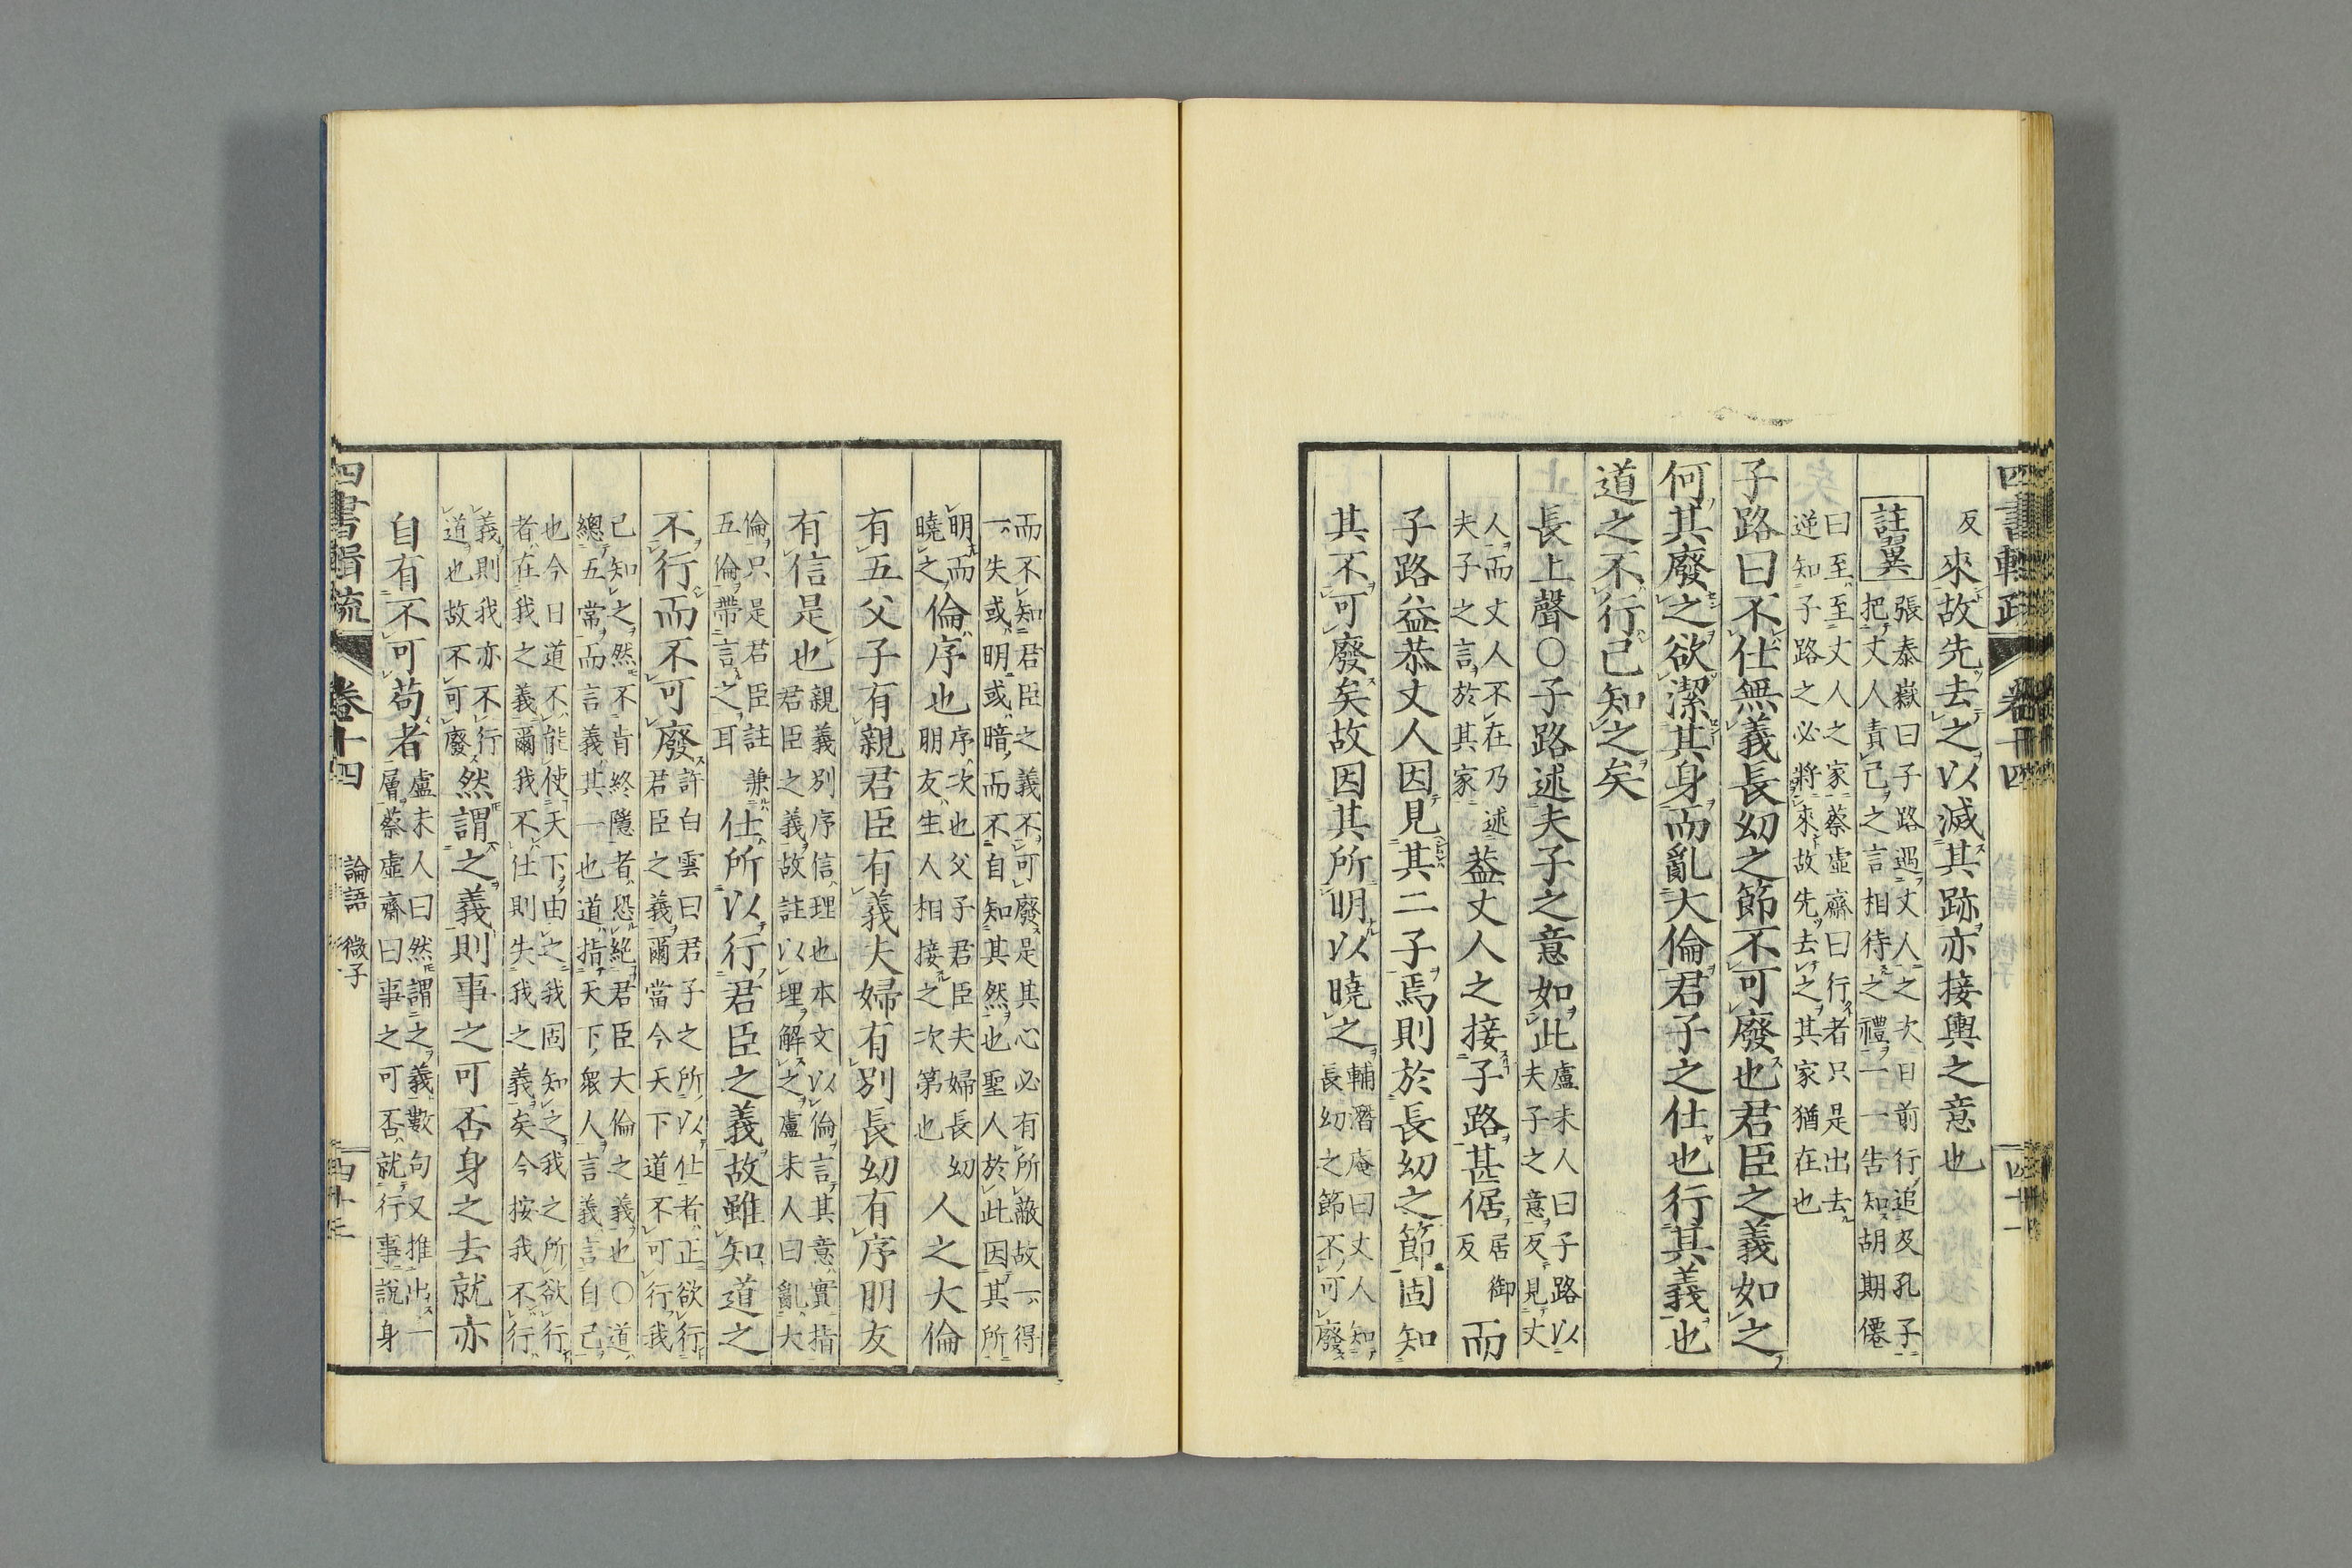 四書輯疏 卷十四
反來故先去之以滅其跡亦接輿之意也
註翼 張泰嶽曰子路遇丈人之次日前行追及孔子
把丈人責己之言相待之禮一一告知胡期僊
曰至至丈人之家蔡虛齋曰行者只是出去
逆知子路之必將來故先去之其家猶在也
子路曰不仕無義長幼之節不可廢也君臣之義如之
何其廢之欲潔其身而亂大倫君子之仕也行其義也
道之不行已知之矣
長上聲○子路述夫子之意如此 盧未人曰子路以
夫子之意反見丈
人而丈人不在乃述
夫子之言於其家 蓋丈人之接子路甚倨 居御
反 而
子路益恭丈人因見其二子焉則於長幼之節固知
其不可廢矣故因其所明以曉之 輔潛庵曰丈人知
長幼之節不可廢
而不知君臣之義不可廢是其心必有所蔽故一得
一失或明或暗而不自知其然也聖人於此因其所
明而
曉之 倫序也 序次也父子君臣夫婦長幼
朋友生人相接之次第也 人之大倫
有五父子有親君臣有義夫婦有別長幼有序朋友
有信是也 親義別序信理也本文以倫言其意實指
君臣之義故註以理解之盧未人曰亂大
倫只是君臣註兼
五倫帶言之耳 仕所以行君臣之義故雖知道之
不行而不可廢 許白雲曰君子之所以仕者正欲行
君臣之義爾當今天下道不可行我
已知之然不肯終隱者恐絕君臣大倫之義也○道
總五常而言義其一也道指天下衆人言義言自己
也今日道不能使天下由之我固知之我之所欲行
者在我之義爾我不仕則失我之義矣今按我不行
義則我亦不行
道也故不可廢 然謂之義則事之可否身之去就亦
自有不可苟者 盧未人曰然謂之義數句又推出一
層蔡虛齋曰事之可否就行事說身
四書輯疏 卷十四 論語 微子